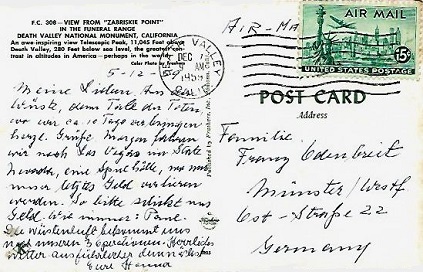 F.C. 308 — VIEW FROM "ZABRISKIE POINT"
IN THE FUNERAL RANGE
DEATH VALLEY NATIONAL MONUMENT, CALIFORNIA
An awe inspiring view Telescopic Peak, 11,045 Feet above
Death Valley, 280 Feet below sea level, the greatest con-
trast in altitudes in America — perhaps in the world.
Color Photo by
5-12-59
Meine Lieben. An der
Wüste, dem Tale des Toten
wo wir ca. 10 Tage verbringen
Grüße Morgen fahren
wir nach Las Vegas im State
Nevada, eine Spielhölle, wo wir
unser letztes Geld verlieren
werden. So bitte schickt uns
Geld. Wie immer:
Die Wüstenluft bekommt uns
nach unseren 3 operationen. Herrliches
Wetter
Eure Hanna
Published by
AIR-MAIL
VALLEY
DEC
AM
1959
CALIF.
AIR MAIL
15¢
UNITED STATES POSTAGE
POST CARD
Address
Familie
Franz Odenbreit
Münster/Westf
Ost-Straße 22
Germany